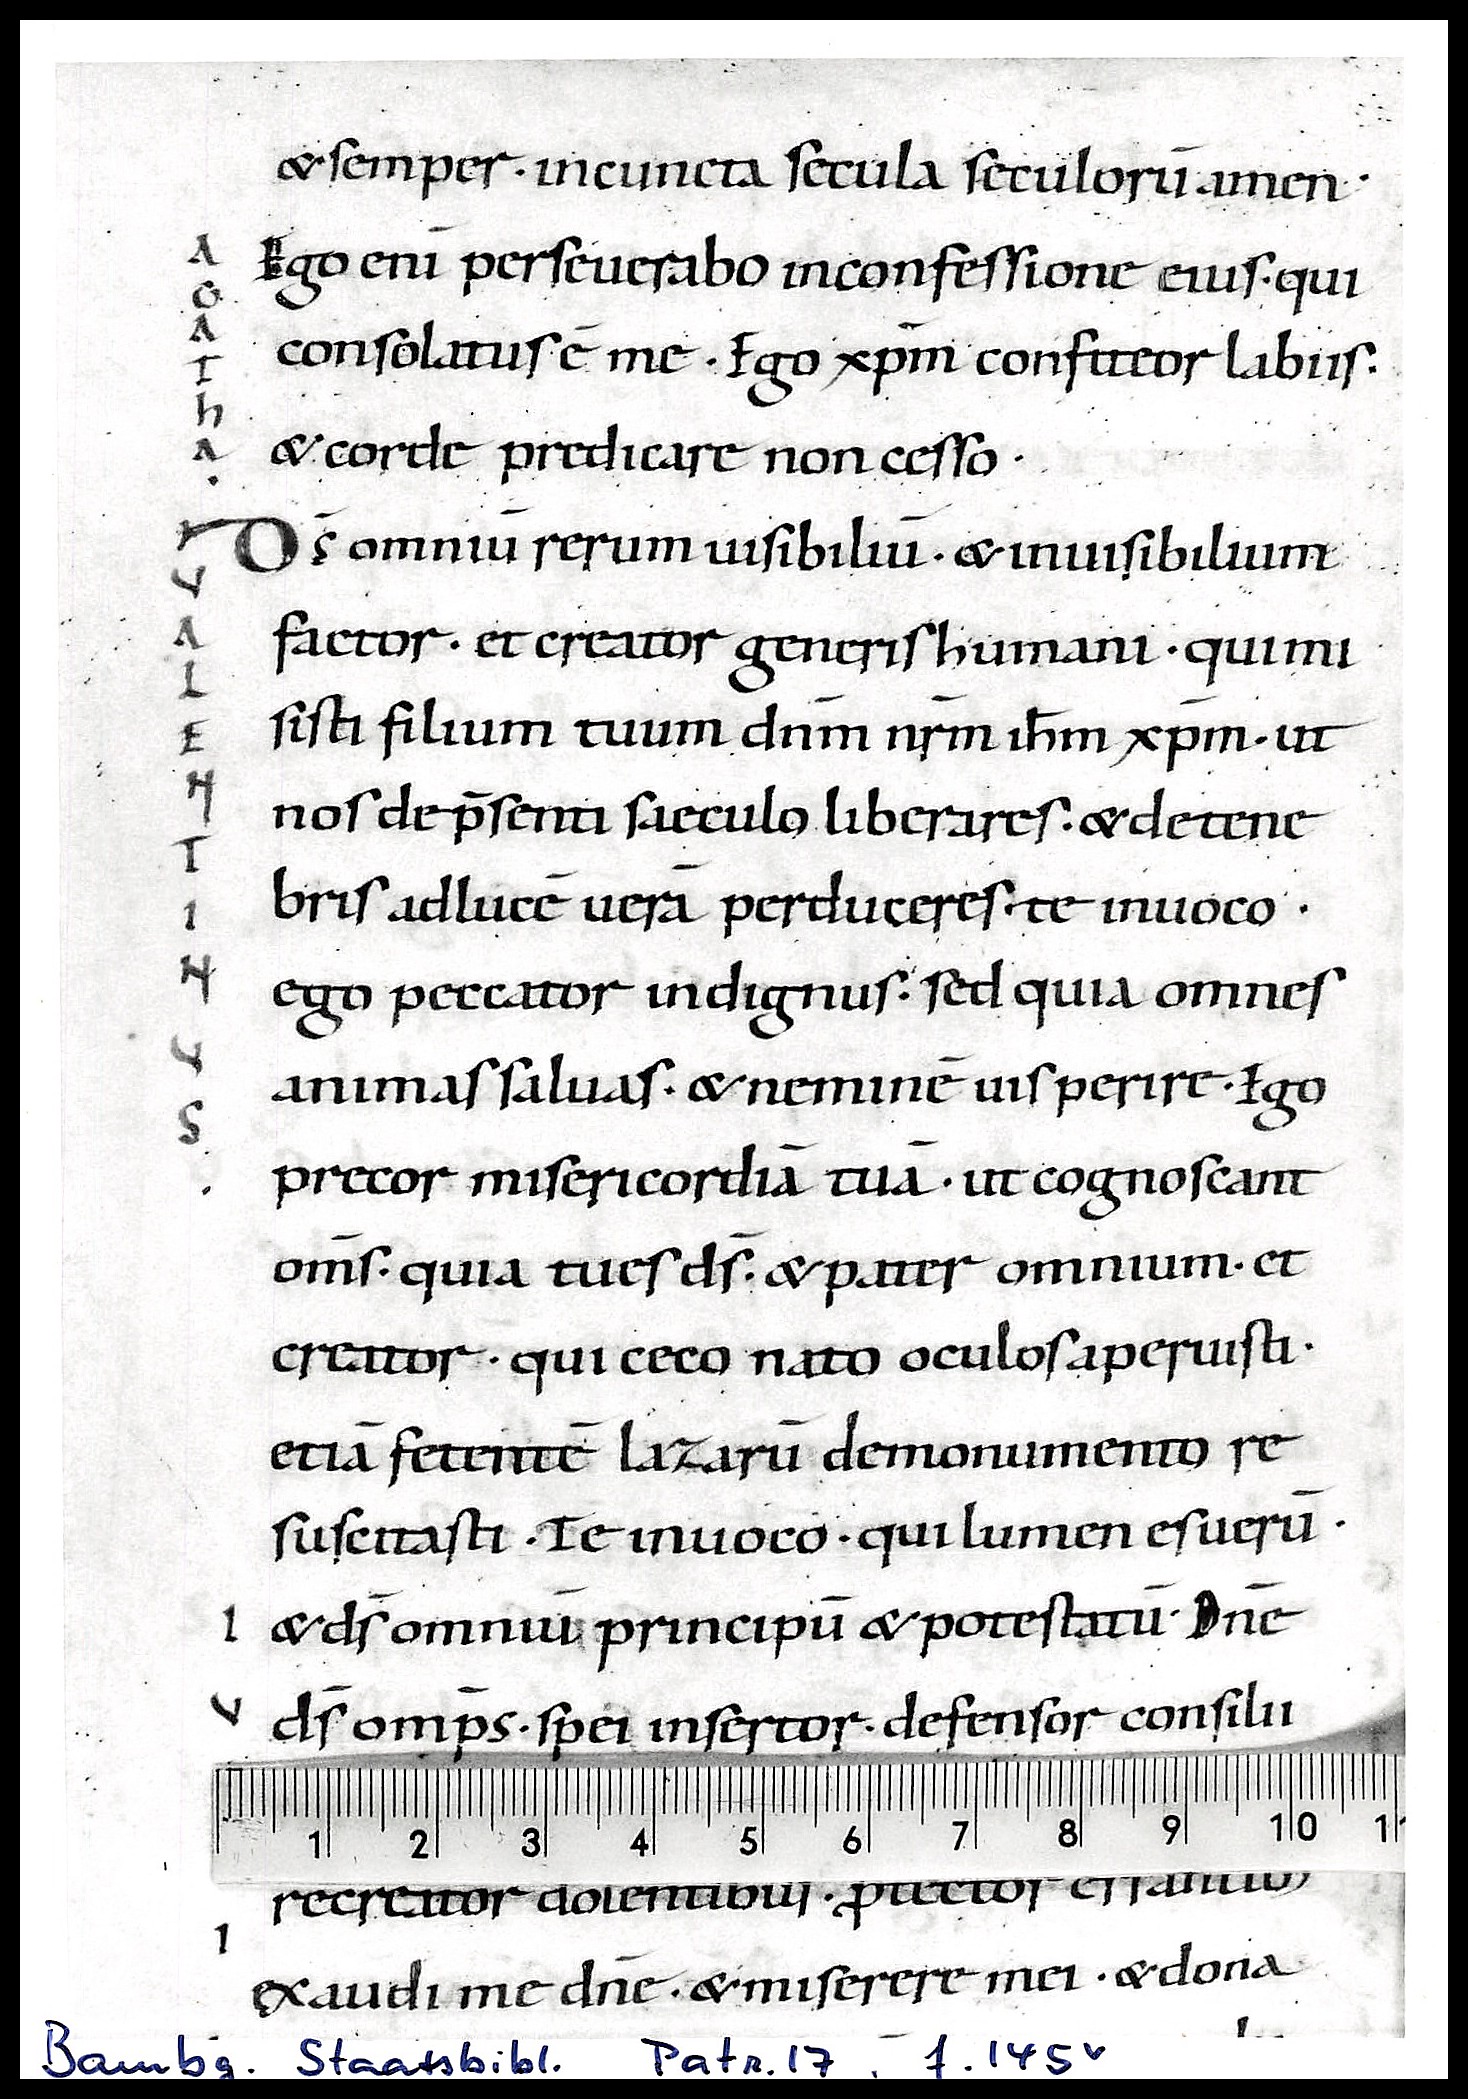 & semper · incuncta secula seculorū amen ·
Ego enī perseuerabo inconfessione eius · qui
consolatus ē me · Ego xp̄m confiteor labiis ·
& corde predicare non cesso ·
D̄s omniū rerum uisibiliū · & inuisibilium
factor · et creator generis humani · qui mi
sisti filium tuum dn̄m nr̄m ih̄m xp̄m · ut
nos de p̄senti saeculo liberares · & de tene
bris ad lucē uerā perduceres · te inuoco ·
ego peccator indignus · sed quia omnes
animas saluas · & neminē uis perire · Ego
precor misericordiā tuā · ut cognoscant
om̄s · quia tu es d̄s · & pater omnium · et
creator · qui ceco nato oculos aperuisti ·
etiā fetentē lazarū de monumento re
suscitasti · Te inuoco · qui lumen es uerū ·
& d̄s omniū principū & potestatū · Dn̄e
d̄s omp̄s · spei insertor · defensor consilii
recreator dolentibus · ꝓtector
exaudi me dn̄e · & miserere mei · & dona
AGATHA ·
VALENTINVS ·
I
V
I
1 2 3 4 5 6 7 8 9 10 11
Bambg. Staatsbibl. Patr. 17, f. 145v